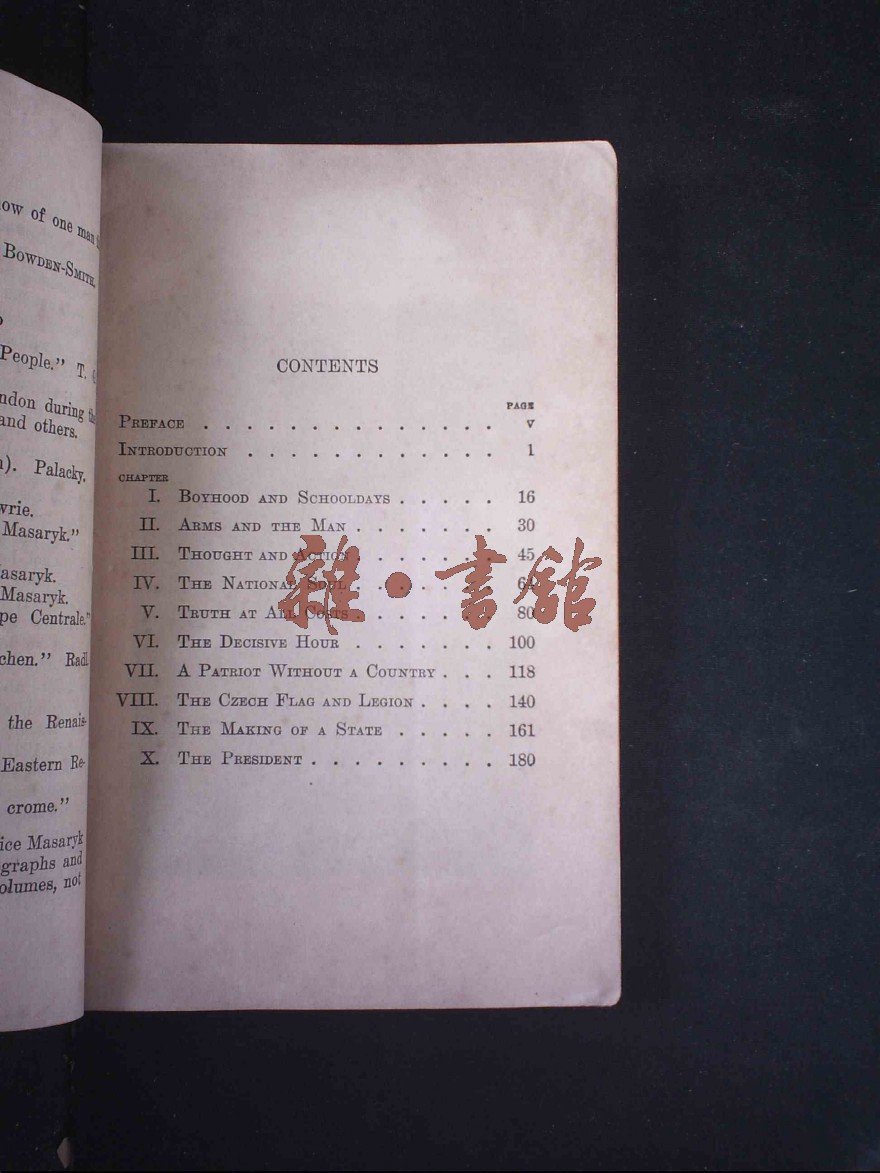 ow of one man
Bowden-Smith.
People." T.
ndon during the
and others.
Palacky,
wrie.
Masaryk."
asaryk.
Masaryk.
pe Centrale."
chen." Radl
the Renais-
Eastern Re-
crome."
ice Masaryk
graphs and
olumes, not
CONTENTS
PAGE
Preface . . . . . . . . . . . . . . v
Introduction . . . . . . . . . . . . 1
CHAPTER
I. Boyhood and Schooldays . . . . . 16
II. Arms and the Man . . . . . . . 30
III. Thought and Action . . . . . . 45
IV. The National Soul . . . . . . . 64
V. Truth at All Costs . . . . . . . 80
VI. The Decisive Hour . . . . . . . 100
VII. A Patriot Without a Country . . . 118
VIII. The Czech Flag and Legion . . . . 140
IX. The Making of a State . . . . . 161
X. The President . . . . . . . . . 180
雜·書館